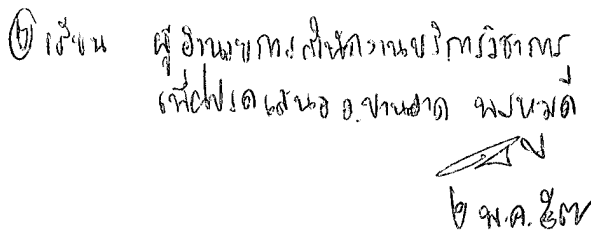 ② เรียน ผู้อำนวยการสำนักงานบริการวิชาการ
เพื่อโปรดเสนอ อ.ชานอาด พรหมดี
๒ พ.ค. ๕๗